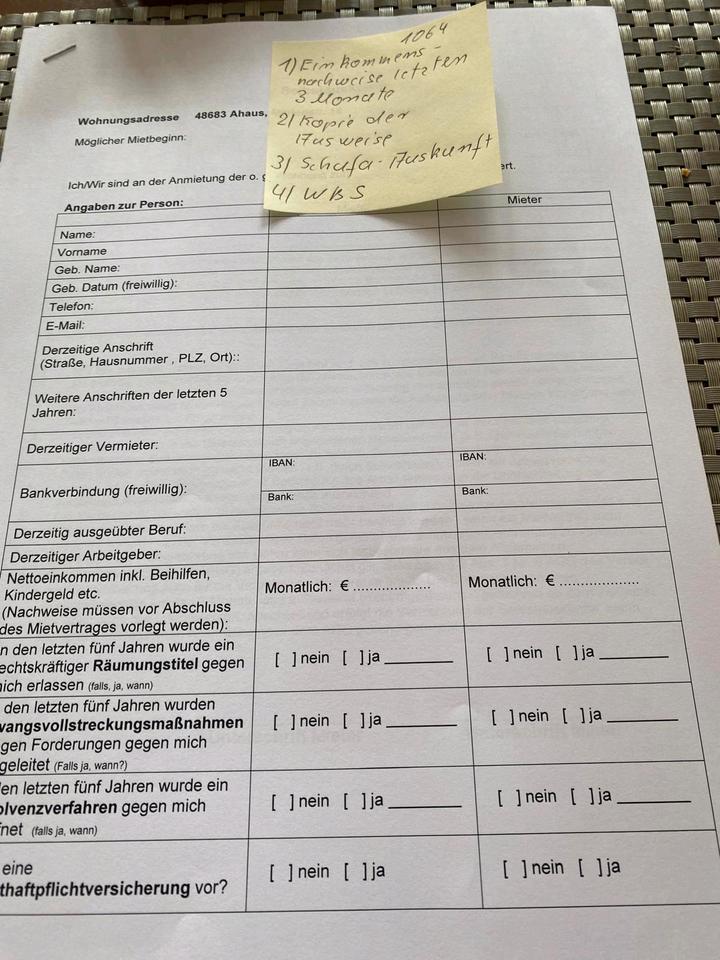 1064
1) Einkommens-
nachweise letzten
3 Monate
2) Kopie der
Ausweise
3) Schufa-Auskunft
4) WBS
Wohnungsadresse 48683 Ahaus,
Möglicher Mietbeginn:
Ich/Wir sind an der Anmietung der o. g
ert.
Angaben zur Person:
Mieter
Name:
Vorname
Geb. Name:
Geb. Datum (freiwillig):
Telefon:
E-Mail:
Derzeitige Anschrift
(Straße, Hausnummer , PLZ, Ort)::
Weitere Anschriften der letzten 5
Jahren:
Derzeitiger Vermieter:
Bankverbindung (freiwillig):
IBAN: IBAN:
Bank: Bank:
Derzeitig ausgeübter Beruf:
Derzeitiger Arbeitgeber:
Nettoeinkommen inkl. Beihilfen,
Kindergeld etc.
(Nachweise müssen vor Abschluss
des Mietvertrages vorlegt werden):
Monatlich: € ................... Monatlich: € ...................
n den letzten fünf Jahren wurde ein
echtskräftiger Räumungstitel gegen
nich erlassen (falls, ja, wann)
[ ] nein [ ] ja ________ [ ] nein [ ] ja ________
den letzten fünf Jahren wurden
wangsvollstreckungsmaßnahmen
gen Forderungen gegen mich
geleitet (Falls ja, wann?)
[ ] nein [ ] ja ________ [ ] nein [ ] ja ________
en letzten fünf Jahren wurde ein
olvenzverfahren gegen mich
fnet (falls ja, wann)
[ ] nein [ ] ja ________ [ ] nein [ ] ja ________
eine
thaftpflichtversicherung vor?
[ ] nein [ ] ja [ ] nein [ ] ja